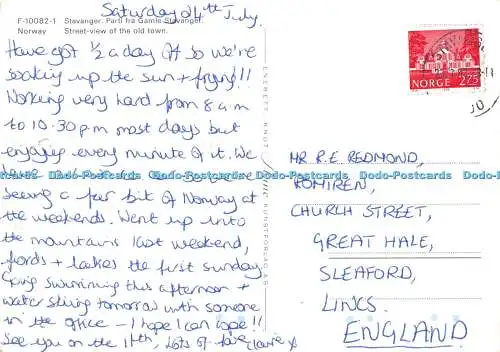 Saturday 24th July.
F-10082-1 Stavanger. Parti fra Gamle Stavanger.
Norway Street-view of the old town.
Have got ½ a day off so we're
soaking up the sun + frying!!
Working very hard from 8am
to 10.30pm most days but
enjoying every minute of it. We
have been
seeing a fair bit of Norway at
the weekends. Went up into
the mountains last weekend,
fiords + lakes the first sunday.
Going swimming this afternoon +
water skiing tomorrow with someone
in the office - I hope I can cope!!
See you on the 11th, Lots of love Claire x
NORGE 275
MR R.E REDMOND,
ROMIREN,
CHURCH STREET,
GREAT HALE,
SLEAFORD,
LINCS.
ENGLAND
Dodo-Postcards Dodo-Postcards Dodo-Postcards Dodo-Postcards